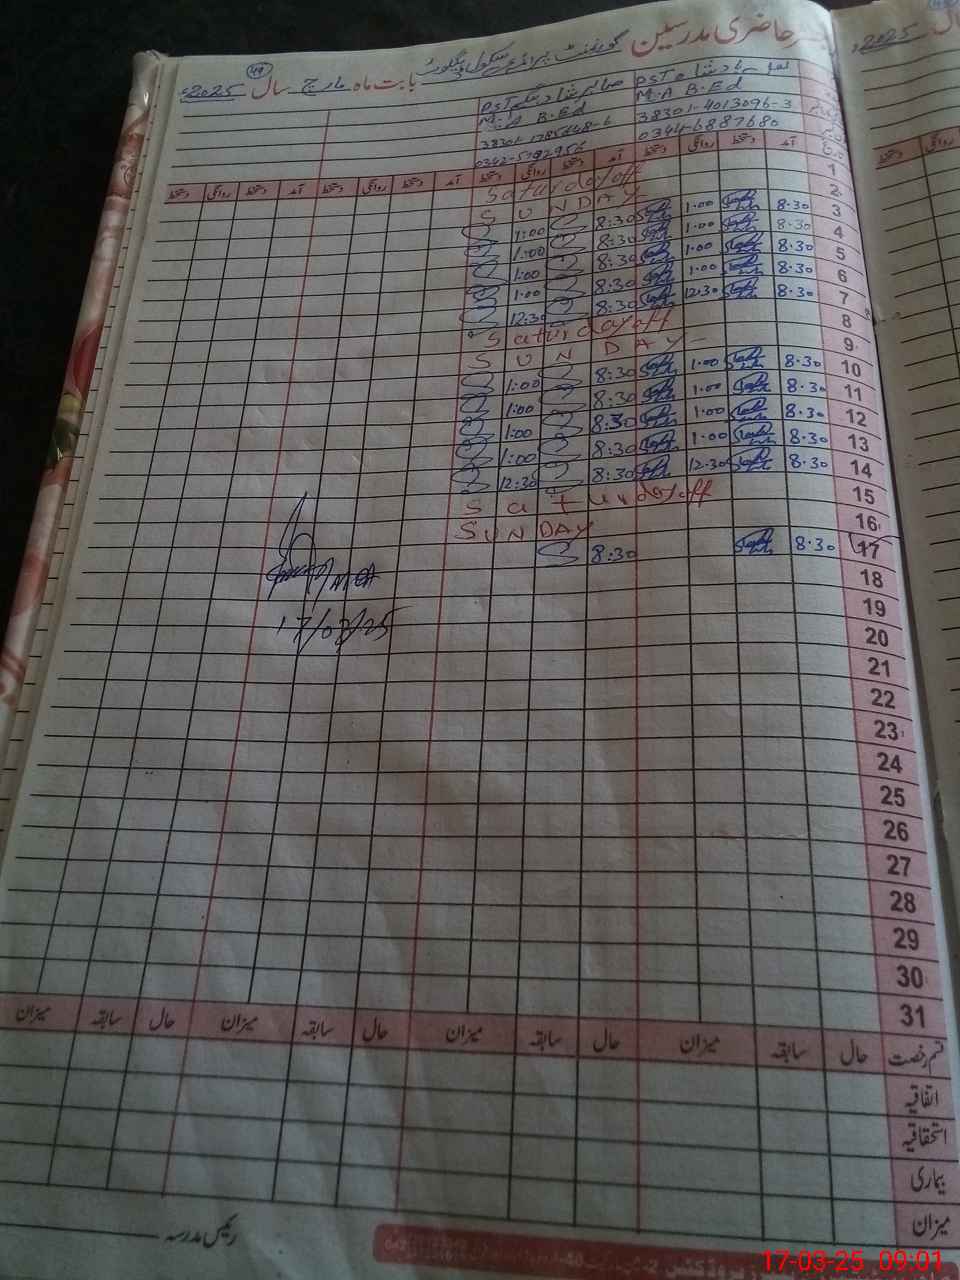 رجسٹر حاضری مدرسین گورنمنٹ پرائمری سکول بابت ماہ مارچ سال 2025ء
49
PST
M.A B.Ed
38301-4013096-3
0344-6887680
PST
M.A B.Ed
38301-1785648-6
0342-5792956
تاریخ آمد دستخط روانگی دستخط آمد دستخط روانگی دستخط آمد دستخط روانگی دستخط آمد دستخط روانگی دستخط
1 Saturday off
2 SUNDAY
3 8.30 1.00 8:30 1:00
4 8.30 1.00 8:30 1:00
5 8.30 1.00 8:30 1:00
6 8.30 1.00 8:30 1:00
7 8.30 12.30 8:30 12:30
8 Saturday off
9 SUNDAY
10 8.30 1.00 8:30 1:00
11 8.30 1.00 8:30 1:00
12 8.30 1.00 8:30 1:00
13 8.30 1.00 8:30 1:00
14 8.30 12.30 8:30 12:30
15 Saturday off
16 SUNDAY
17 8.30 8:30
MEA
17/03/25
18
19
20
21
22
23
24
25
26
27
28
29
30
31
قسم رخصت حال سابقہ میزان حال سابقہ میزان حال سابقہ میزان حال سابقہ میزان
اتفاقیہ
استحقاقیہ
بیماری
میزان
رئیس مدرسہ
2025ء
سال
17-03-25 09:01